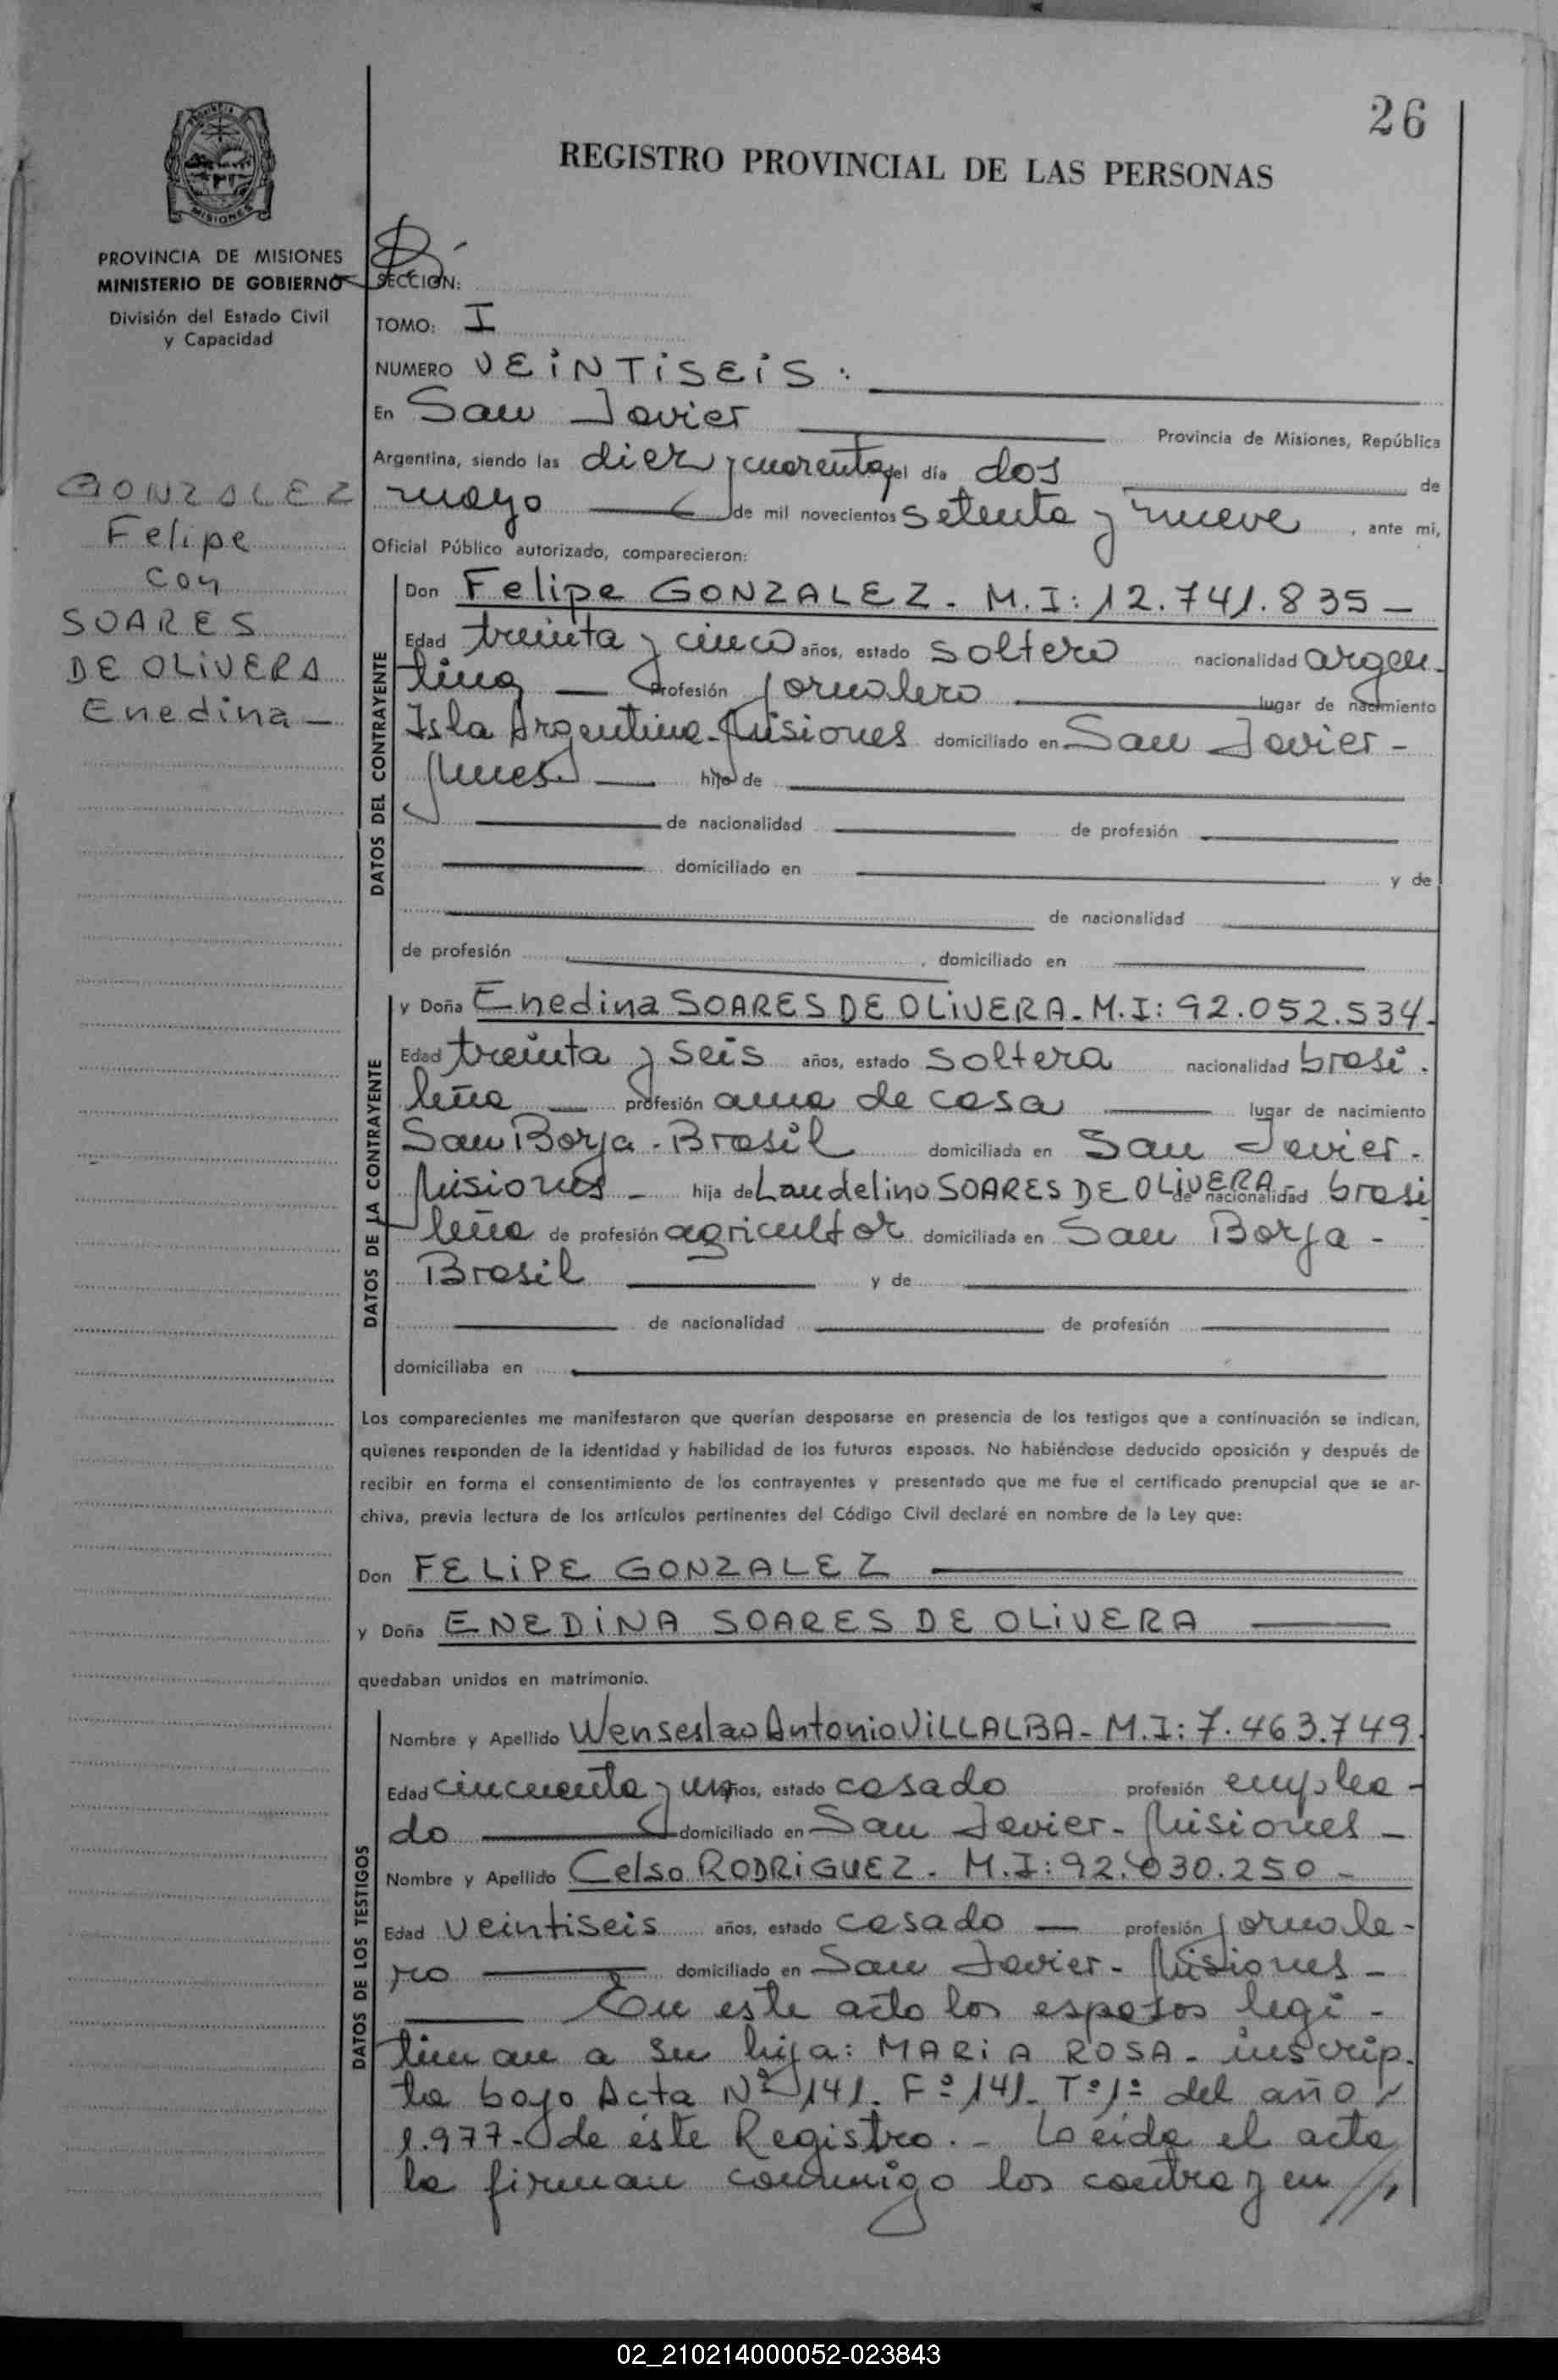 26
REGISTRO PROVINCIAL DE LAS PERSONAS
PROVINCIA
MISIONES
PROVINCIA DE MISIONES
MINISTERIO DE GOBIERNO
División del Estado Civil
y Capacidad
SECCION:
TOMO: I
NUMERO VEiNTiSEiS.
En San Javier Provincia de Misiones, República
Argentina, siendo las diez y cuarenta del día dos de
mayo de mil novecientos setenta y nueve, ante mi,
Oficial Público autorizado, comparecieron:
GONZALEZ
Felipe
con
SOARES
DE OLiVERA
Enedina -
DATOS DEL CONTRAYENTE
Don Felipe GONZALEZ. M.I: 12.741.835 -
Edad treinta y cinco años, estado soltero nacionalidad argen-
tina - Profesión jornalero lugar de nacimiento
Isla Argentina-Misiones domiciliado en San Javier-
Mnes. hijo de
de nacionalidad de profesión
domiciliado en y de
de nacionalidad
de profesión , domiciliado en
DATOS DE LA CONTRAYENTE
y Doña Enedina SOARES DE OLiVERA. M.I: 92.052.534-
Edad treinta y seis años, estado soltera nacionalidad brasi-
leña profesión ama de casa lugar de nacimiento
San Borja. Brasil domiciliada en San Javier.
Misiones - hija de Laudelino SOARES DE OLiVERA de nacionalidad brasi
leña de profesión agricultor domiciliada en San Borja -
Brasil y de
de nacionalidad de profesión
domiciliaba en
Los comparecientes me manifestaron que querían desposarse en presencia de los testigos que a continuación se indican,
quienes responden de la identidad y habilidad de los futuros esposos. No habiéndose deducido oposición y después de
recibir en forma el consentimiento de los contrayentes y presentado que me fue el certificado prenupcial que se ar-
chiva, previa lectura de los artículos pertinentes del Código Civil declaré en nombre de la Ley que:
Don FELiPE GONZALEZ
y Doña ENEDiNA SOARES DE OLiVERA
quedaban unidos en matrimonio.
DATOS DE LOS TESTIGOS
Nombre y Apellido Wenseslao Antonio ViLLALBA- M.I: 7.463.749.
Edad cincuenta y un años, estado casado profesión emplea-
do domiciliado en San Javier- Misiones -
Nombre y Apellido Celso RODRiGUEZ. M.I: 92.030.250 -
Edad veintiseis años, estado casado - profesión jornale-
ro domiciliado en San Javier- Misiones -
En este acto los esposos legi-
timan a su hija: MARiA ROSA- inscrip-
ta bajo Acta Nº 141. Fº 141- Tº 1º del año
1.977- de éste Registro.- Leída el acta
la firman conmigo los contrayen //
02_210214000052-023843